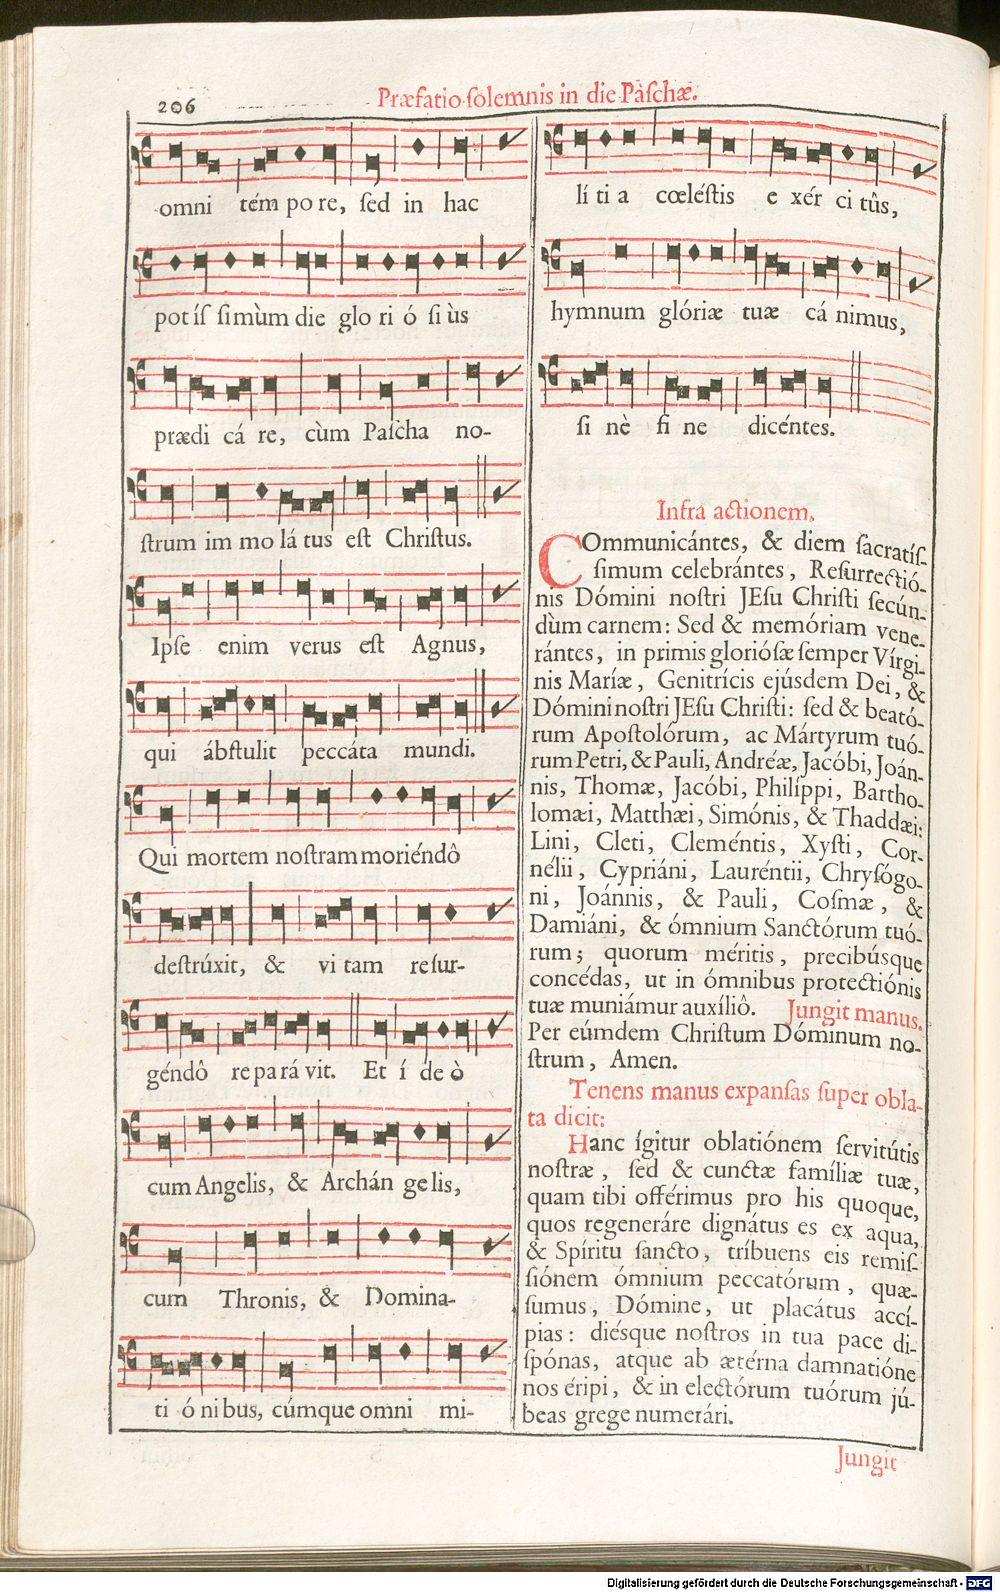 206
Præfatio solemnis in die Pàschæ.
omni tém po re, sed in hac
pot íſ ſimùm die glo ri ó ſi ùs
prædi cá re, cùm Paſcha no-
ſtrum im mo lá tus eſt Chriſtus.
Ipſe enim verus eſt Agnus,
qui ábſtulit peccáta mundi.
Qui mortem noſtram moriéndô
deſtrúxit, & vi tam reſur-
géndô re pa rá vit. Et í de ò
cum Angelis, & Archán ge lis,
cum Thronis, & Domina-
ti ó ni bus, cúmque omni mi-
lí ti a cœléſtis e xér ci tûs,
hymnum glóriæ tuæ cá nimus,
ſi nè fi ne dicéntes.
Infra actionem.
COmmunicántes, & diem ſacratíſ-
ſimum celebrántes, Reſurrectió-
nis Dómini noſtri JEſu Chriſti ſecún-
dùm carnem: Sed & memóriam vene-
rántes, in primis glorióſæ ſemper Vírgi-
nis Maríæ, Genitrícis ejúsdem Dei, &
Dómini noſtri JEſu Chriſti: ſed & beató-
rum Apoſtolórum, ac Mártyrum tuó-
rum Petri, & Pauli, Andréæ, Jacóbi, Joán-
nis, Thomæ, Jacóbi, Philíppi, Bartho-
lomæi, Matthæi, Simónis, & Thaddæi:
Lini, Cleti, Cleméntis, Xyſti, Cor-
nélii, Cypriáni, Lauréntii, Chryſógo-
ni, Joánnis, & Pauli, Coſmæ, &
Damiáni, & ómnium Sanctórum tuó-
rum; quorum méritis, precibúsque
concédas, ut in ómnibus protectiónis
tuæ muniámur auxíliô. Jungit manus.
Per eúmdem Chriſtum Dóminum no-
ſtrum, Amen.
Tenens manus expanſas ſuper obla-
ta dicit:
Hanc ígitur oblatiónem ſervitútis
noſtræ, ſed & cunctæ famíliæ tuæ,
quam tibi offérimus pro his quoque,
quos regeneráre dignátus es ex aqua,
& Spíritu ſancto, tríbuens eis remiſ-
ſiónem ómnium peccatórum, quæ-
ſumus, Dómine, ut placátus accí-
pias: diésque noſtros in tua pace di-
ſpónas, atque ab ætérna damnatióne
nos éripi, & in electórum tuórum jú-
beas grege numerári.
Jungit
Digitalisierung gefördert durch die Deutsche Forschungsgemeinschaft - DFG